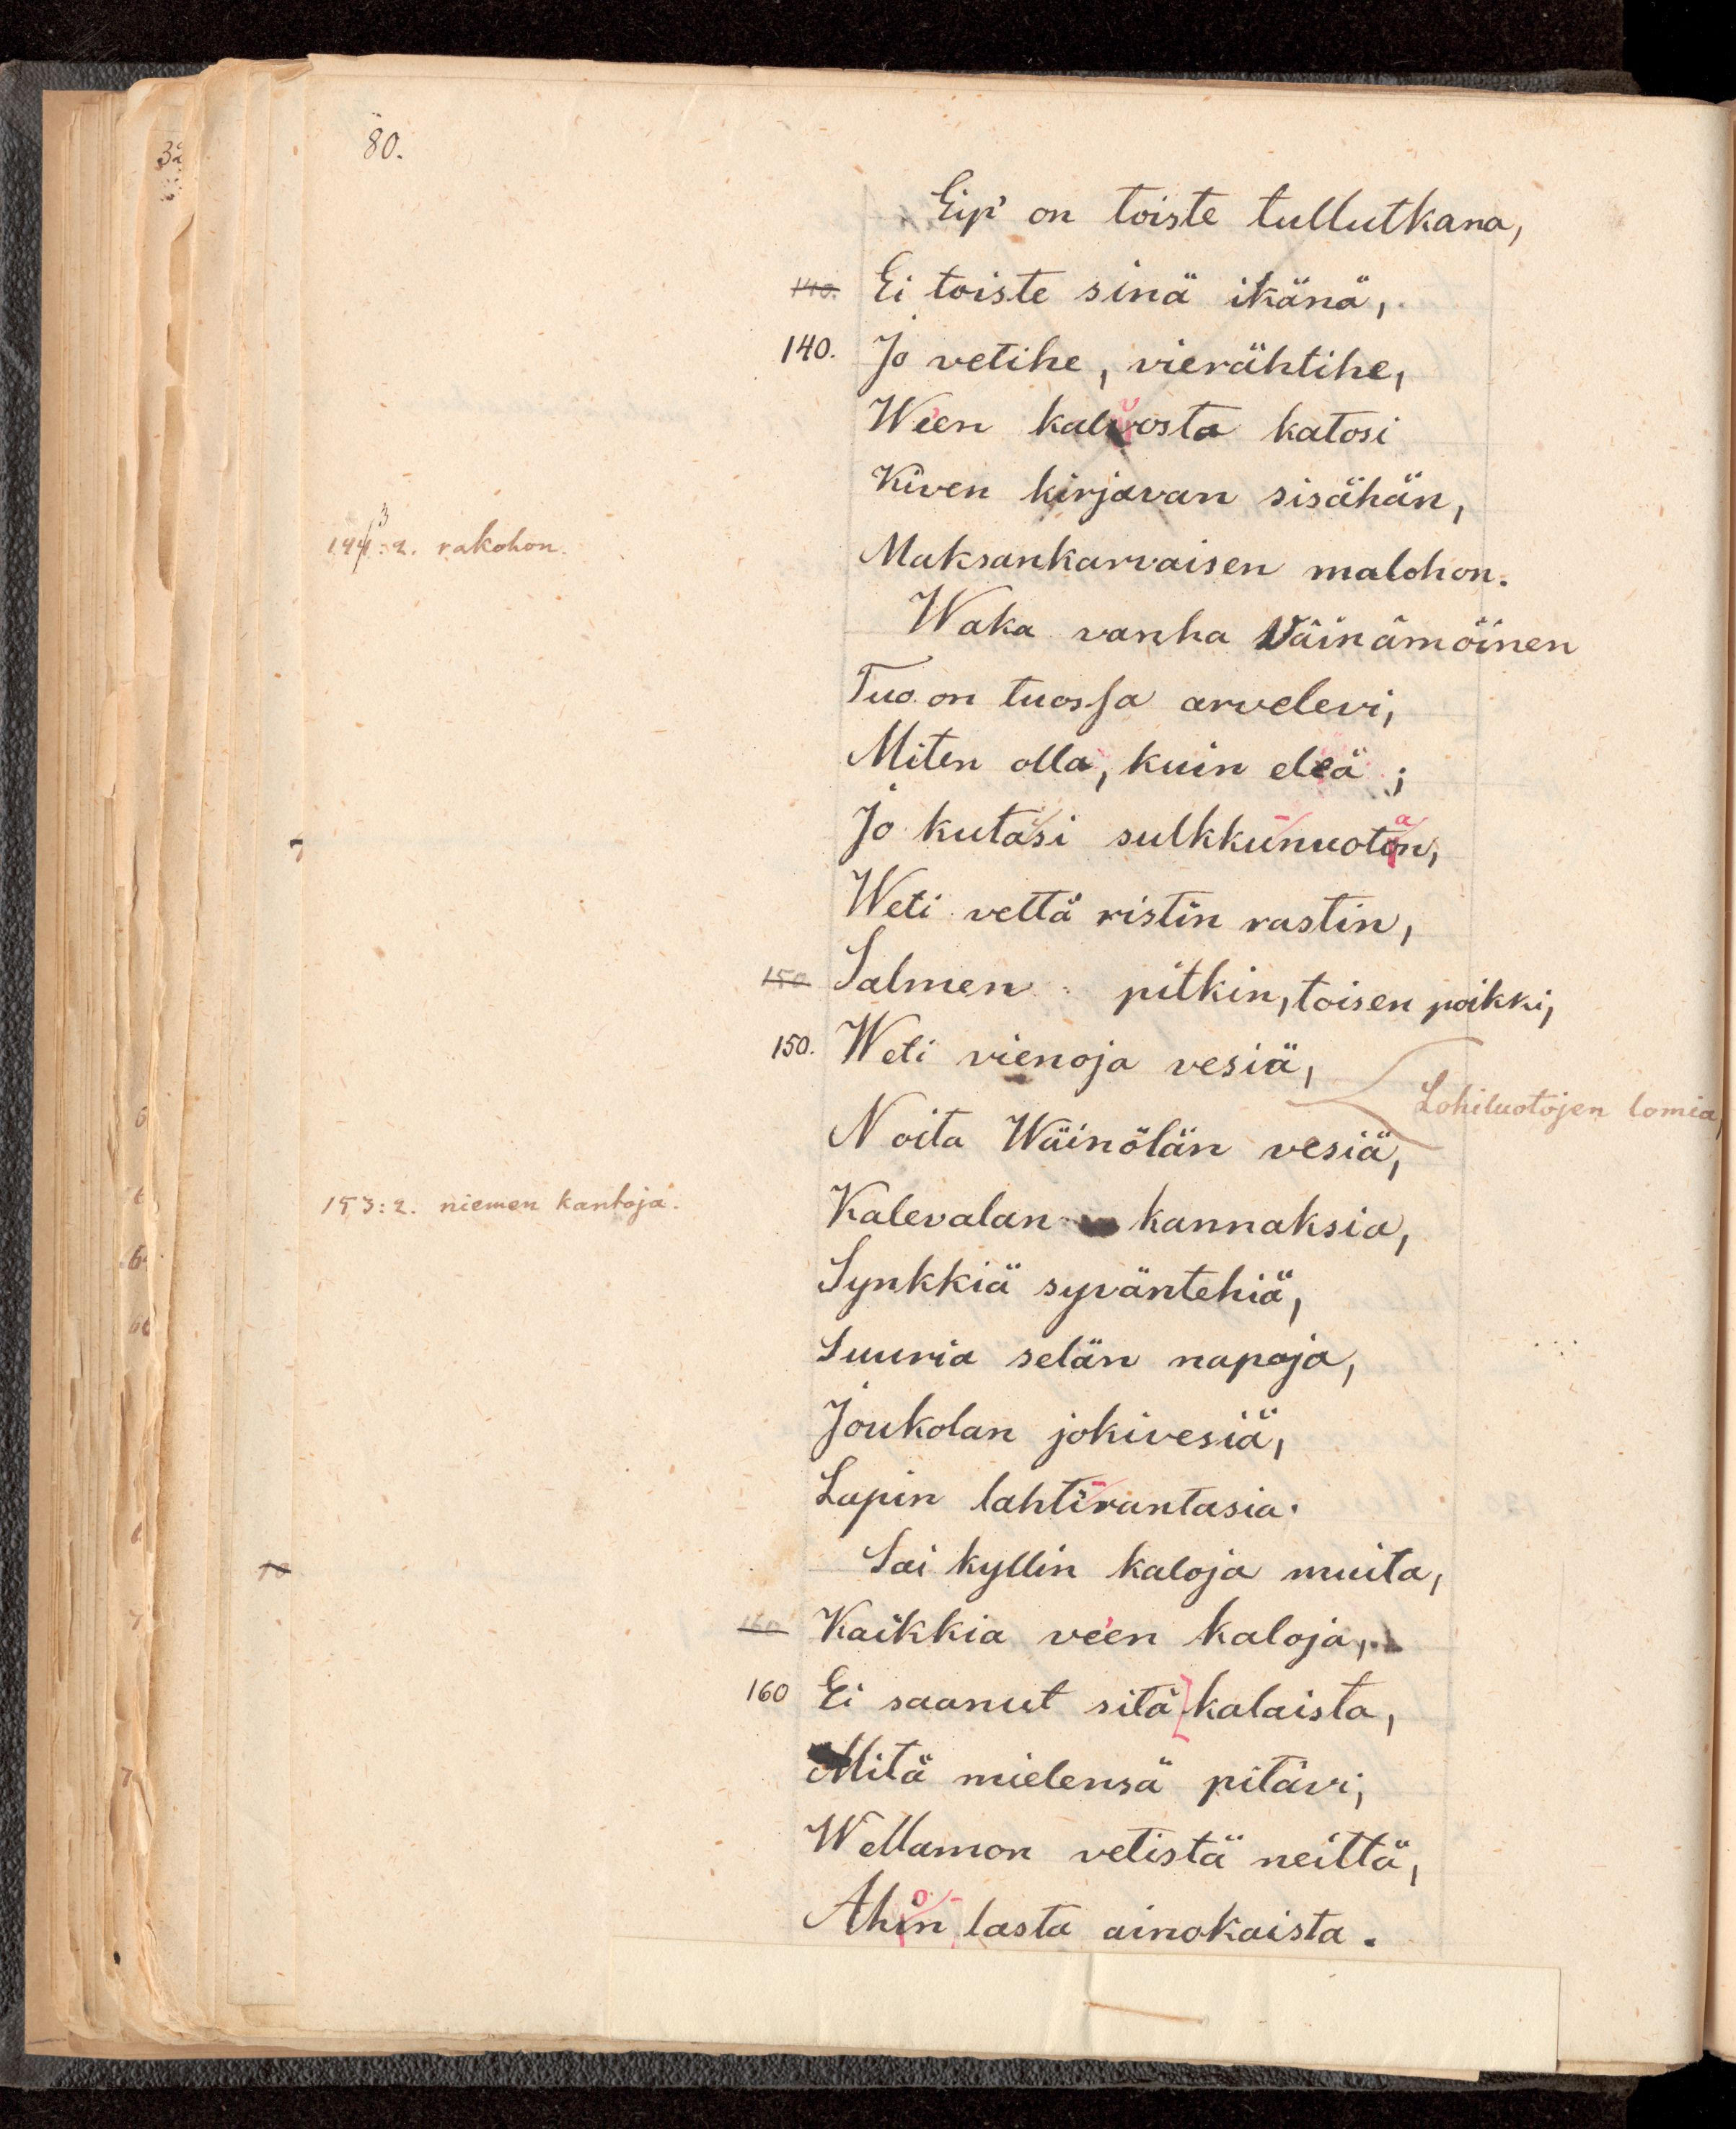 80.
Eip' on toiste tullutkana,
140. Ei toiste sinä ikänä,
140. Jo vetihe, vierähtihe,
Ween kalvosta katosi
Kiven kirjavan sisähän,
1443:2. rakohon.
Maksankarvaisen malohon.
Waka vanha Väinämöinen
Tuo on tuossa arvelevi,
Miten olla, kuin eleä;
Jo kutasi sulkkunuotan,
Weti vettä ristin rastin,
150 Salmen pitkin, toisen poikki,
150. Weti vienoja vesiä,
Lohiluotojen lomia,
Noita Wäinölän vesiä,
153:2. niemen kantoja.
Kalevalan kannaksia,
Synkkiä syväntehiä,
Suuria selän napoja,
Joukolan jokivesiä,
Lapin lahti-rantasia.
Sai kyllin kaloja muita,
160 Kaikkia ve'en kaloja,
160 Ei saanut sitä kalaista,
Mitä mielensä pitävi;
Wellamon vetistä neittä,
Ahin lasta ainokaista.